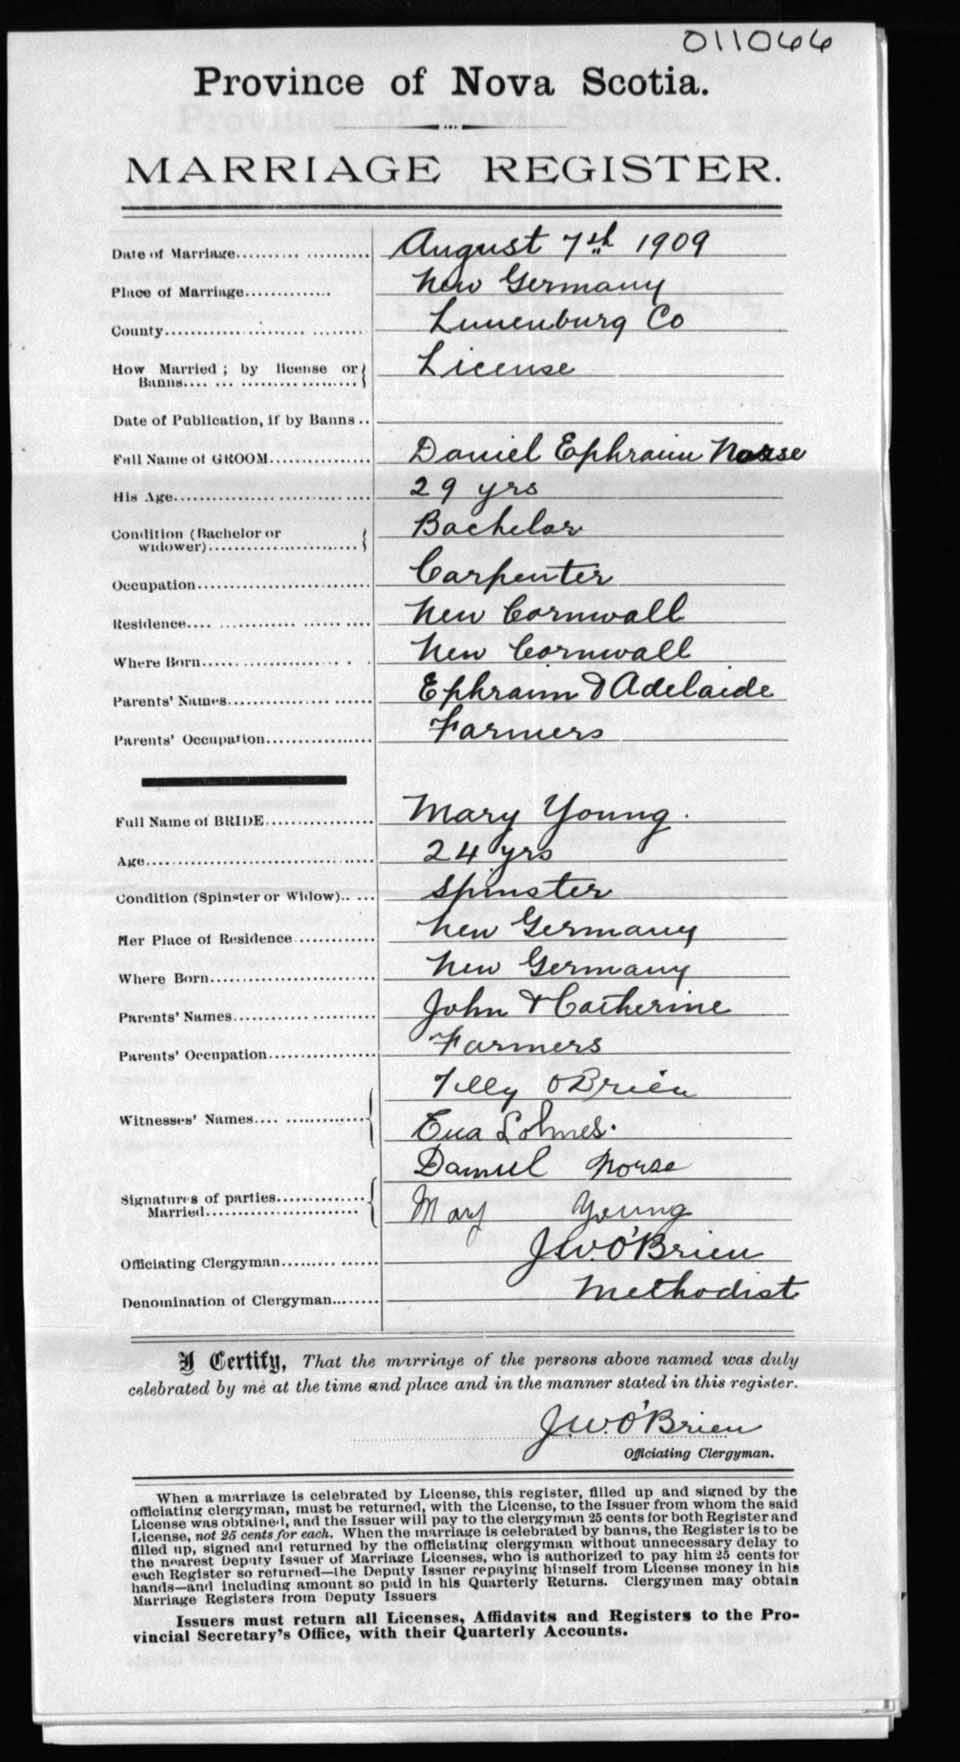 011066
Province of Nova Scotia.
MARRIAGE REGISTER.
Date of Marriage.......... August 7th 1909
Place of Marriage............. New Germany
County.......... Lunenburg Co
How Married ; by license or Banns.......... License
Date of Publication, if by Banns ..
Full Name of GROOM................ Daniel Ephraim Norse
His Age.......... 29 yrs
Condition (Bachelor or widower).......... Bachelor
Occupation.......... Carpenter
Residence.......... New Cornwall
Where Born.......... New Cornwall
Parents' Names.......... Ephraim & Adelaide
Parents' Occupation................. Farmers
Full Name of BRIDE................. Mary Young.
Age.......... 24 yrs
Condition (Spinster or Widow).. ... Spinster
Her Place of Residence ............ New Germany
Where Born.......... New Germany
Parents' Names.......... John & Catherine
Parents' Occupation................. Farmers
Tilly O Brien
Witnesses' Names.......... Eva Lohnes.
Daniel Norse
Signatures of parties Married.......... Mary Young
Officiating Clergyman.......... J.W. O'Brien
Denomination of Clergyman........ Methodist
I Certify, That the marriage of the persons above named was duly
celebrated by me at the time and place and in the manner stated in this register.
J.W. O'Brien
Officiating Clergyman.
When a marriage is celebrated by License, this register, filled up and signed by the
officiating clergyman, must be returned, with the License, to the Issuer from whom the said
License was obtained, and the Issuer will pay to the clergyman 25 cents for both Register and
License, not 25 cents for each. When the marriage is celebrated by banns, the Register is to be
filled up, signed and returned by the officiating clergyman without unnecessary delay to
the nearest Deputy Issuer of Marriage Licenses, who is authorized to pay him 25 cents for
each Register so returned—the Deputy Issuer repaying himself from License money in his
hands—and including amount so paid in his Quarterly Returns. Clergymen may obtain
Marriage Registers from Deputy Issuers
Issuers must return all Licenses, Affidavits and Registers to the Pro-
vincial Secretary's Office, with their Quarterly Accounts.